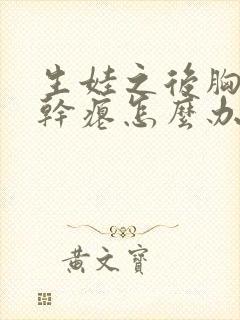 生娃之後胸
幹癟怎麼办
黃文寶